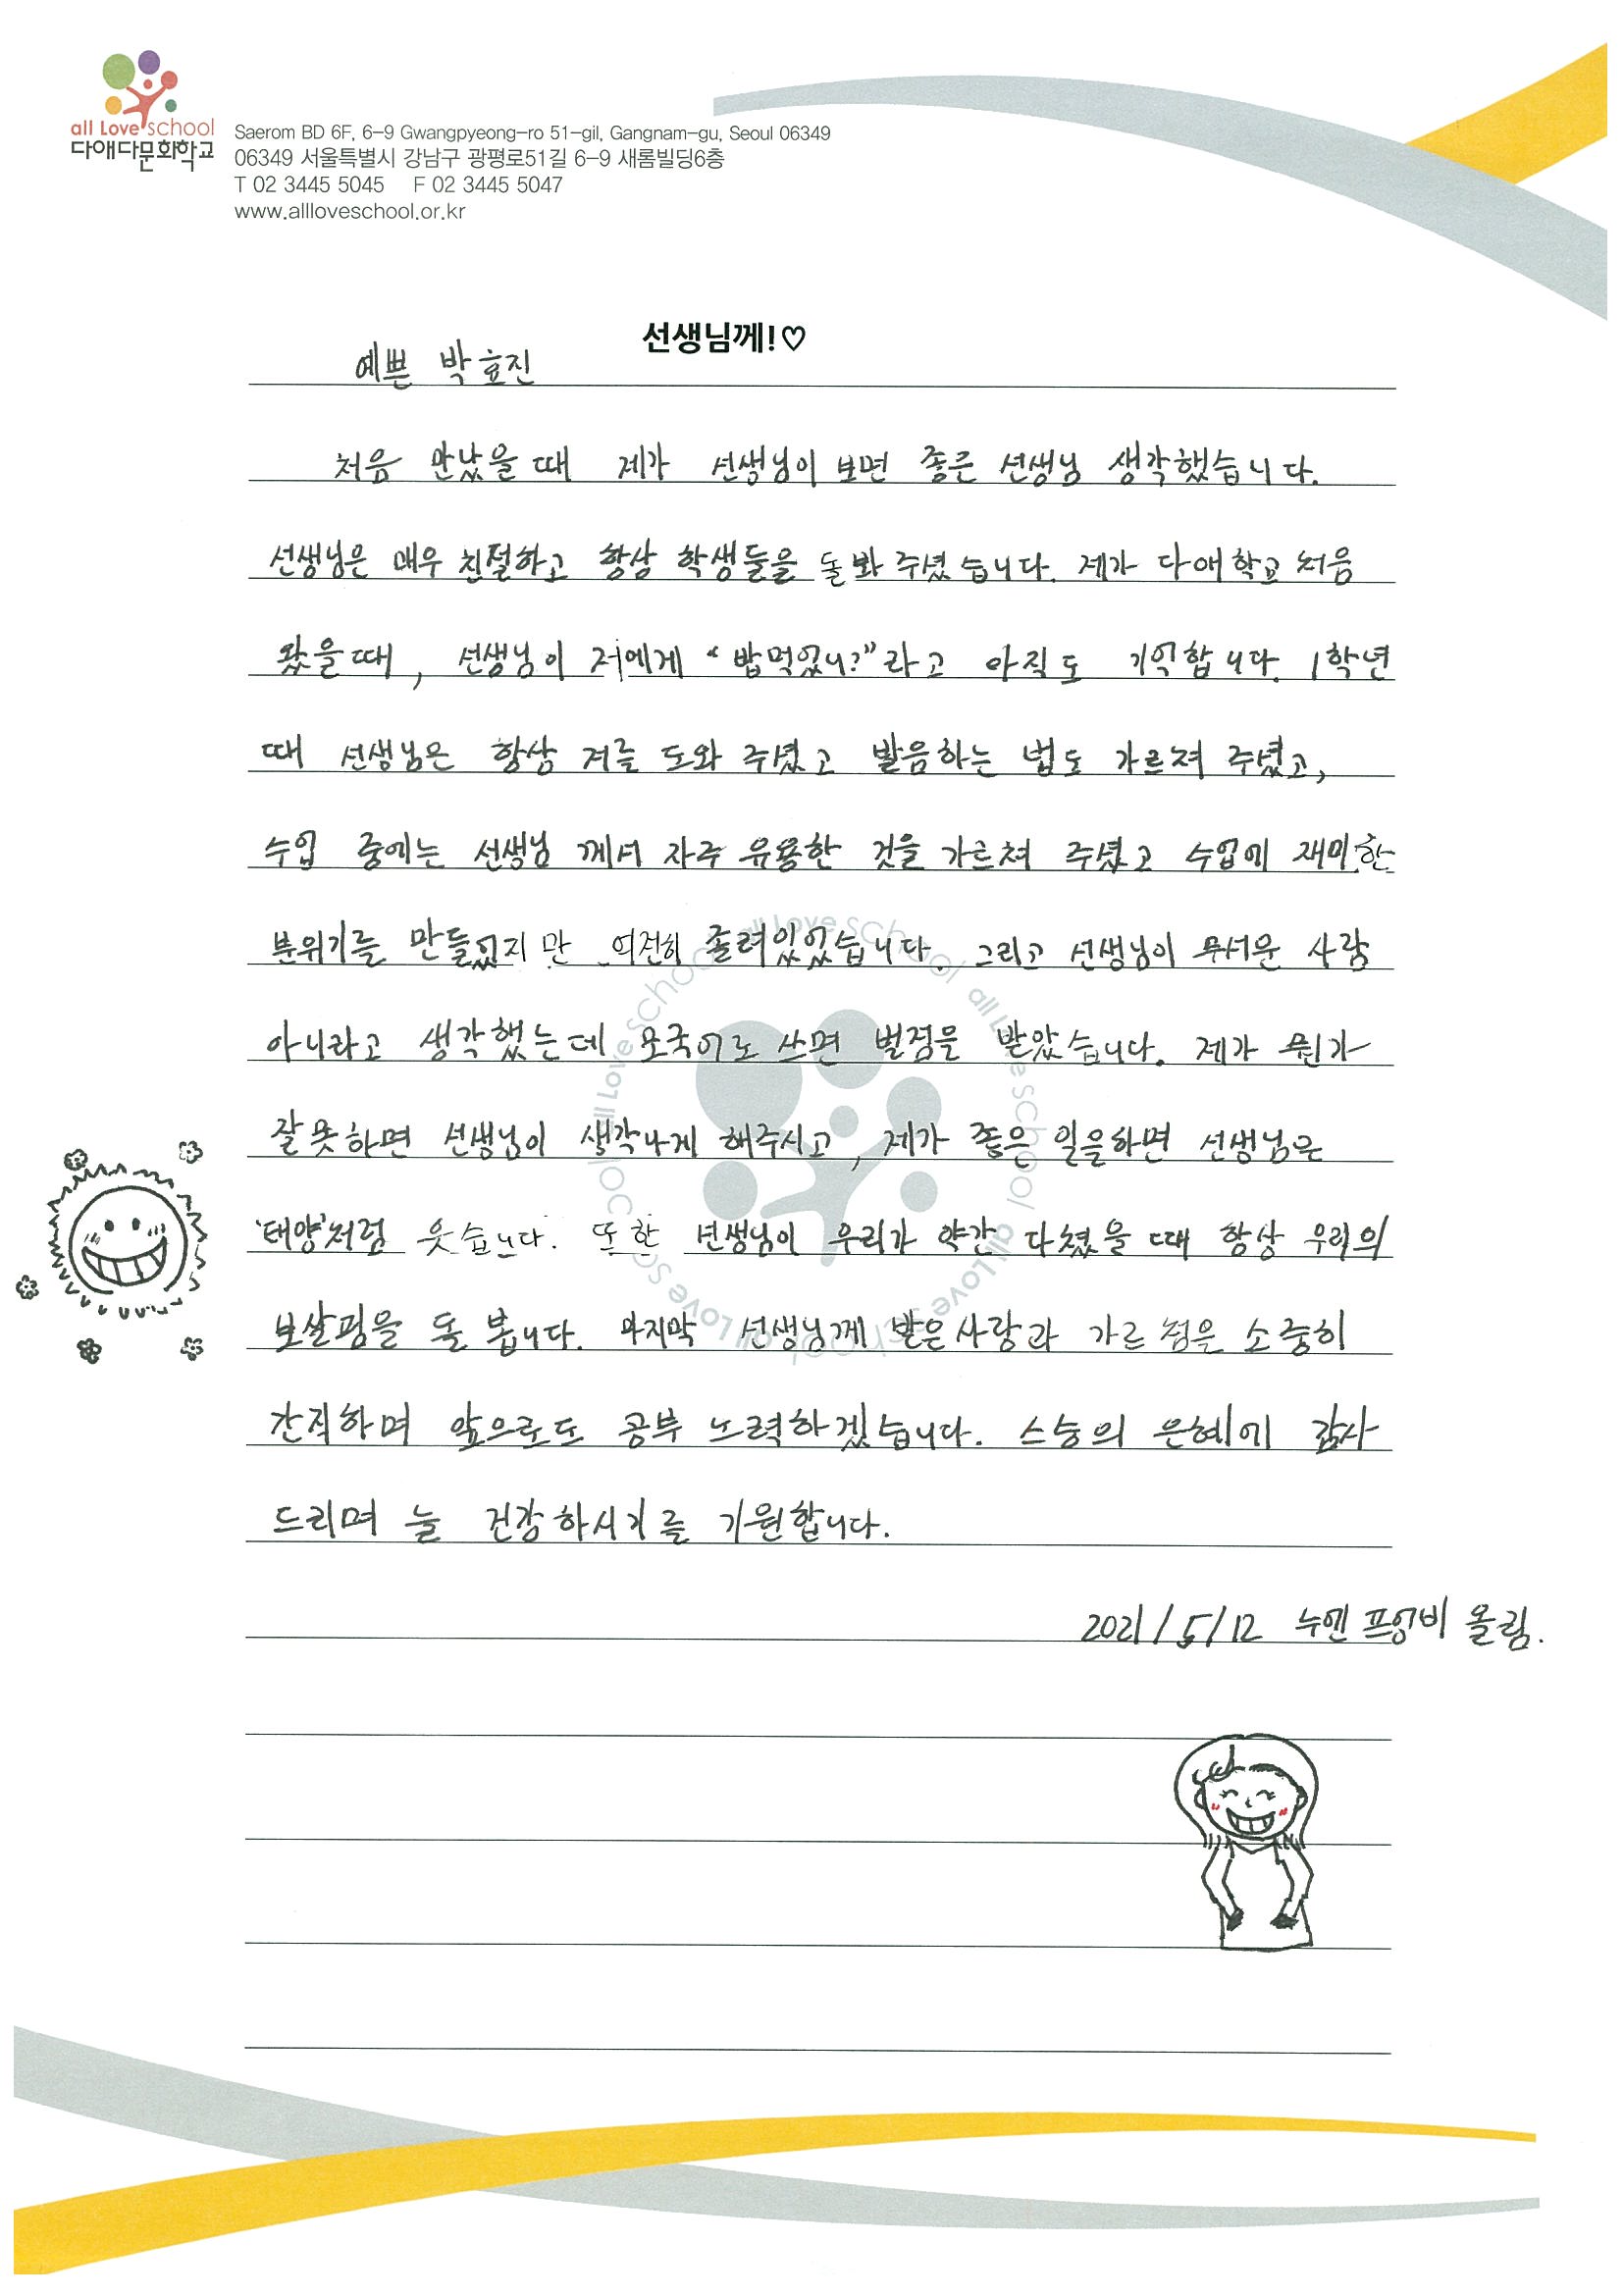 all Love school
다애다문화학교
Saerom BD 6F, 6-9 Gwangpyeong-ro 51-gil, Gangnam-gu, Seoul 06349
06349 서울특별시 강남구 광평로51길 6-9 새롬빌딩6층
T 02 3445 5045 F 02 3445 5047
www.allloveschool.or.kr
예쁜 박효진 선생님께!♡
처음 만났을 때 제가 선생님이 보면 좋은 선생님 생각했습니다.
선생님은 매우 친절하고 항상 학생들을 돌봐 주셨습니다. 제가 다애학교 처음
왔을때, 선생님이 저에게 "밥먹었니?"라고 아직도 기억합니다. 1학년
때 선생님은 항상 저를 도와 주셨고 발음하는 법도 가르쳐 주셨고,
수업 중에는 선생님 께서 자주 유용한 것을 가르쳐 주셨고 수업에 재미한
분위기를 만들었지만 여전히 졸려있었습니다. 그리고 선생님이 무서운 사람
아니라고 생각했는데 모국어로 쓰면 벌점을 받았습니다. 제가 뭔가
잘못하면 선생님이 생각나게 해주시고, 제가 좋은 일을하면 선생님은
'태양'처럼 웃습니다. 또한 선생님이 우리가 약간 다쳤을 때 항상 우리의
보살핌을 돌 봅니다. 마지막 선생님께 받은 사랑과 가르침은 소중히
간직하며 앞으로도 공부 노력하겠습니다. 스승의 은혜에 감사
드리며 늘 건강하시기를 기원합니다.
2021/5/12 누엔 프엉비 올림.
all Love school all Love school all Love school all Love school